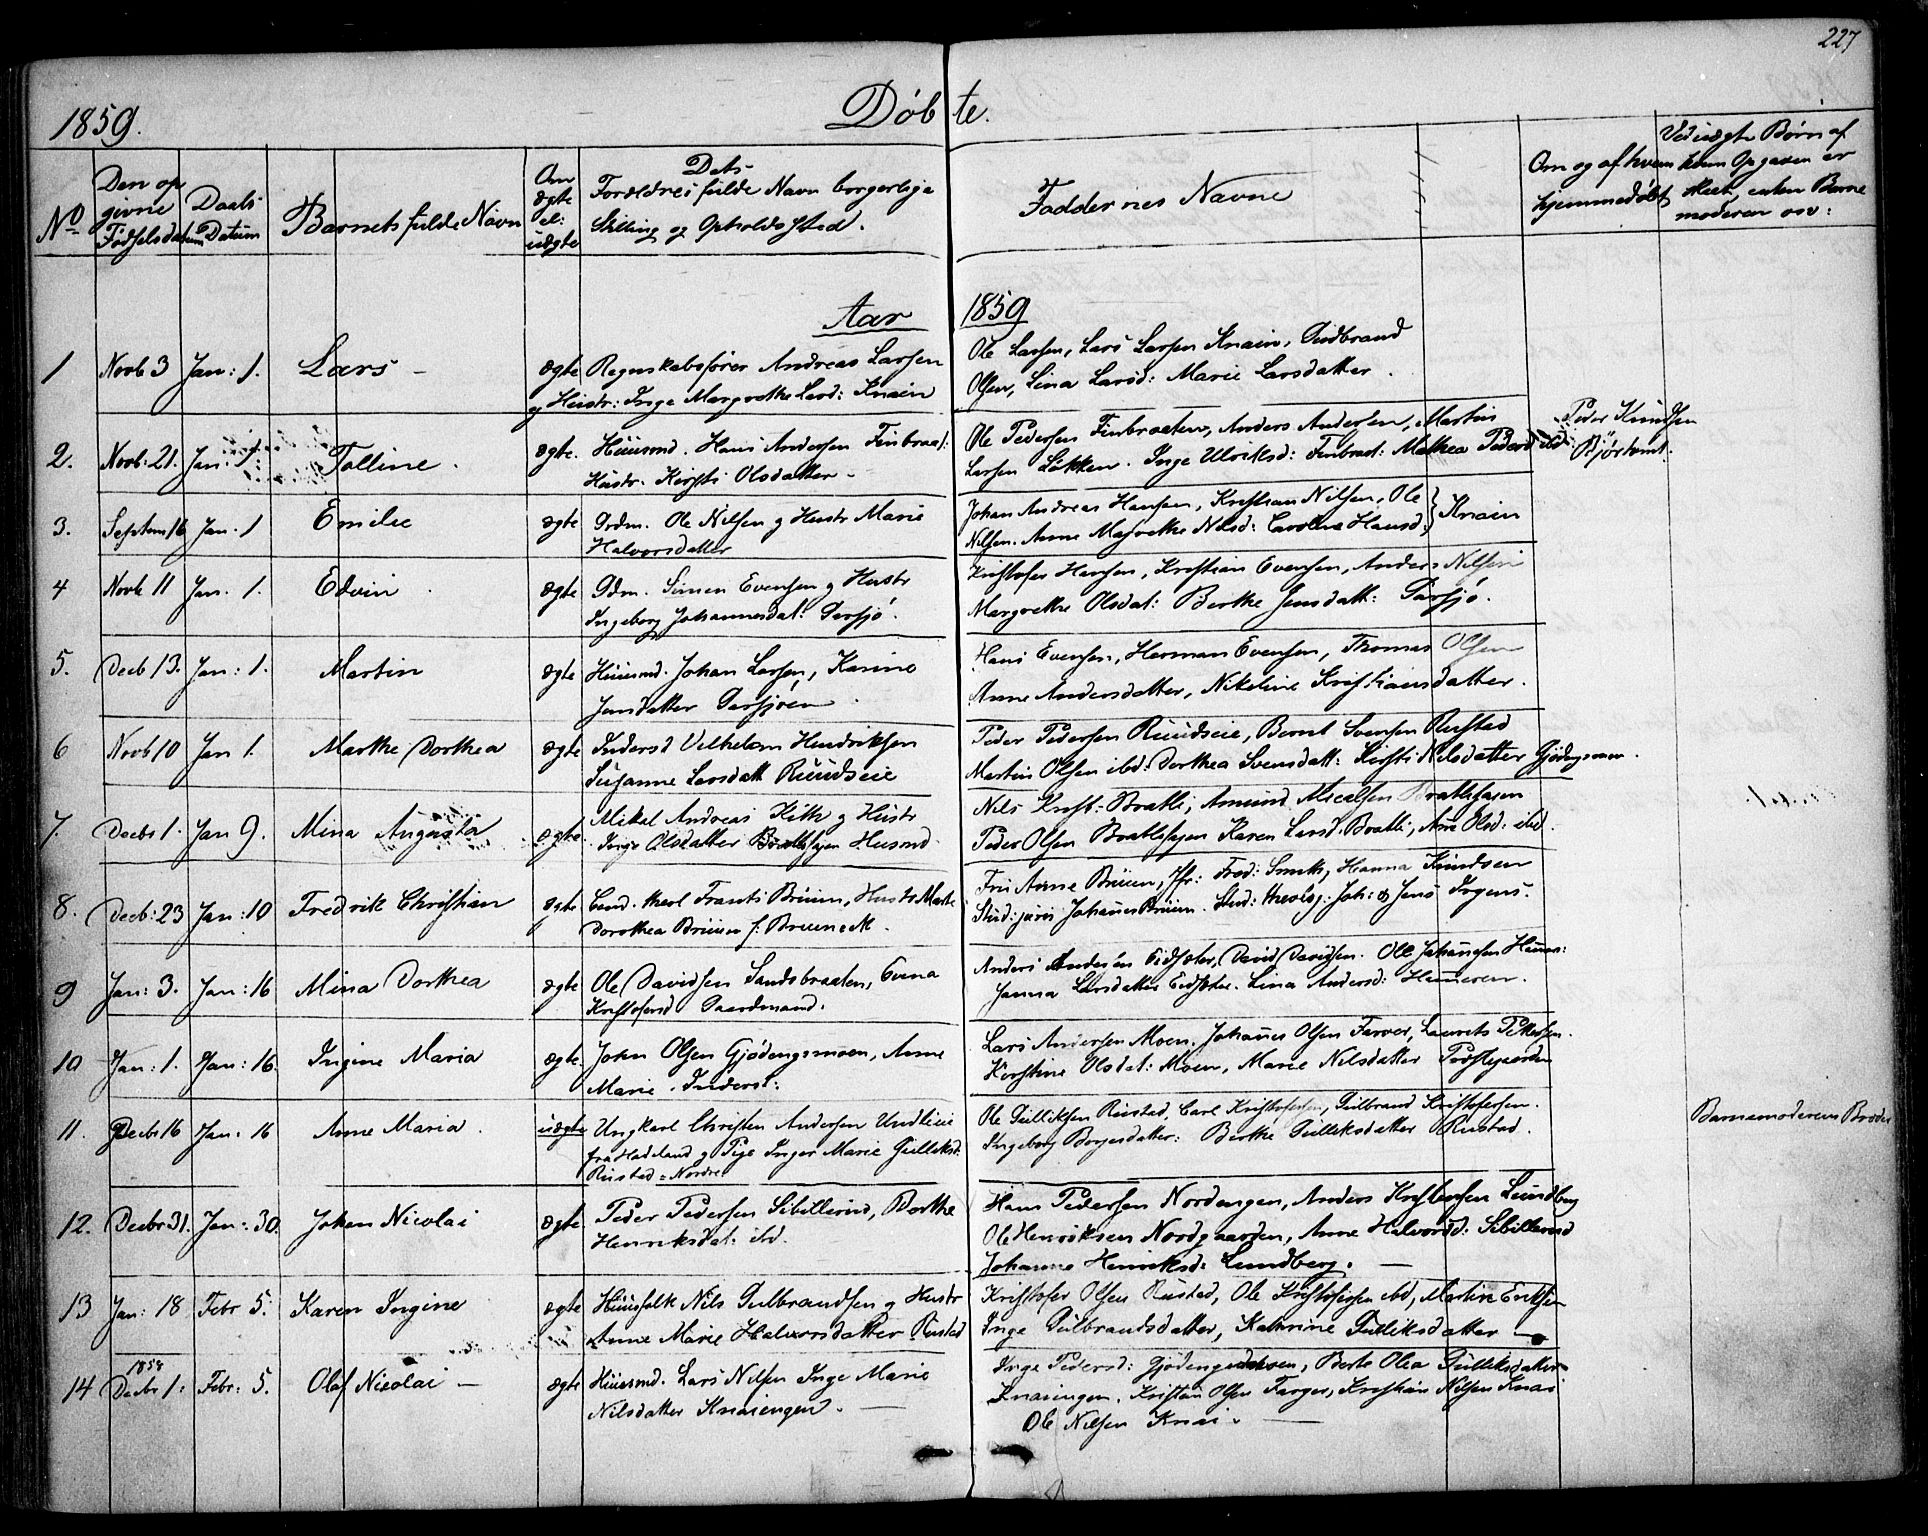 227
1859.
Døbte.
No
Den op
givne
Fødselsdatum
Daabs-
Datum
Barnets fulde Navn
Om
ægte
el:
uægte
Dets
Forældres fulde Navn borgerlige
Stilling og Opholdssted.
Faddernes Navne
Om og af hvem
hjemmedøbt
Ved uægte Børn af
hvem Opgaven er
skeet, enten Barne
moderen osv:
Aar 1859
1 Novb 3 Jan: 1. Lars - ægte Regnskabsfører Andreas Larsen
og Hustr: Inge Margrethe Larsd: Knain
Ole Larsen, Lars Larsen Knain, Gudbrand
Olsen, Lina Larsd: Marie Larsdatter.
2. Novb. 21. Jan: 1. Tolline. ægte. Huusmd. Hans Andersen Finbraat:
Hustr. Kirsti Olsdatter -
Ole Pedersen Finbraaten, Anders Andersen, Martin
Larsen Løkken. Inge Ulriksd: Finbraat: Mathea Pedersd ibd:
Peder Knudsen
Bjørtomt.
3. Septem 16 Jan. 1 Emilie ægte Grdm. Ole Nilsen og Hustr Marie
Halvorsdatter
Johan Andreas Hansen, Kristian Nilsen, Ole
Nilsen. Anne Magrethe Nilsd: Caroline Hansd. } Knain
4 Novb 11 Jan. 1. Edvin. ægte Gdm. Simen Evensen og Hustr
Ingeborg Johannesdat: Garsjø.
Kristofer Hansen, Kristian Evensen, Anders Nilsen
Margrethe Olsdat: Berthe Jensdatt: Garsjø.
5. Decb 13. Jan: 1. Martin ægte Huusmd. Johan Larsen, Karine
Jensdatter Garsjøen.
Hans Evensen, Herman Evensen, Thomas Olsen
Anne Andersdatter, Nikoline Kristiansdatter.
6 Novb 10 Jan 1. Marthe Dorthea ægte Inderst Vilhelm Hendriksen
Susanne Larsdatt Ruudseie
Peder Pedersen Ruudseie, Bernt Svensen Rustad
Martin Olsen ibd: Dorthea Svensdatt: Kirsti Nilsdatter Gjødingsmoen.
7. Decbr 1. Jan 9. Mina Augusta ægte. Mikel Andreas Kith og Hustr
Inge Olsdatter Bratlihagen Husmd.
Nils Krist: Bratli, Amund Micalsen Bratlihagen
Peder Olsen Bratlihagen Karen Larsd. Bratli, Ane Olsd: ibd.
8. Decb: 23 Jan: 10 Fredrik Christian ægte Cand. theol Frants Bruun, Hustr Marte
Dorothea Bruun f. Bruun
Fru Anne Bruun, Jfr: Fred: Smith, Hanna Knudsen
Stud: juris Johannes Bruun. Stud: theolog: Joh: & Jens Frogens.
9 Jan: 3. Jan: 16 Mina Dorthea ægte Ole Davidsen Sandsbraaten, Evena
Kristofersd Gaardmand.
Anders Andersen Eidsæter, David Davidsen. Ole Johannesen Hamer:
Janna Larsdatter Eidsæter. Lina Andersd: Hameren.
10 Jan: 1. Jan: 16. Ingine Maria ægte. John Olsen Gjødingsmoen, Anne
Marie. Inderst:
Lars Andersen Moen. Johannes Olsen Farver, Laurets Pettersen.
Kirstine Olsdat: Moen, Marie Nilsdatter Præstegaarden
11. Decbr 16 Jan: 16 Anne Maria. uægte Ungkarl Christen Andersen Undlieie
fra Hadeland og Pige Inger Marie Gulliksd:
Rustad = Nordre
Ole Gulliksen Rustad, Carl Kristofersen, Gulbrand Kristofersen.
Ingeborg Borgersdatter: Berthe Gulliksdatter Rustad.
Barnemoderens Broder
12. Decbr 31. Jan: 30. Johan Nicolai ægte Peder Pedersen Sibillerud, Dorthe
Henriksdat: ibd.
Hans Pedersen Nordengen, Anders Kristensen Lundberg
Ole Henriksen Nordgaarden, Anne Halvorsd: Sibillerud
Johanne Henriksd: Lundberg. -
13 Jan: 18 Febr 5. Karen Ingine ægte Huusfolk Nils Gulbrandsen og Hustr
Anne Marie Halvorsdatter Rustad
Kristofer Olsen Rustad, Ole Kristofersen ibd, Martin Eriksen
Inge Gulbrandsdatter, Kathrine Gulliksdatter -
14 1858 Decbr 1: Febr: 5. Olaf Nicolai - ægte Huusmd. Lars Nilsen Inge Marie
Nilsdatter Knaiengen. -
Inge Pedersd: Gjødengsmoen, Berte Olea Gulliksdatter
Knaiengen. Kristian Olsen Farger, Kristian Nilsen Knai
Ole Nilsen Knai. -